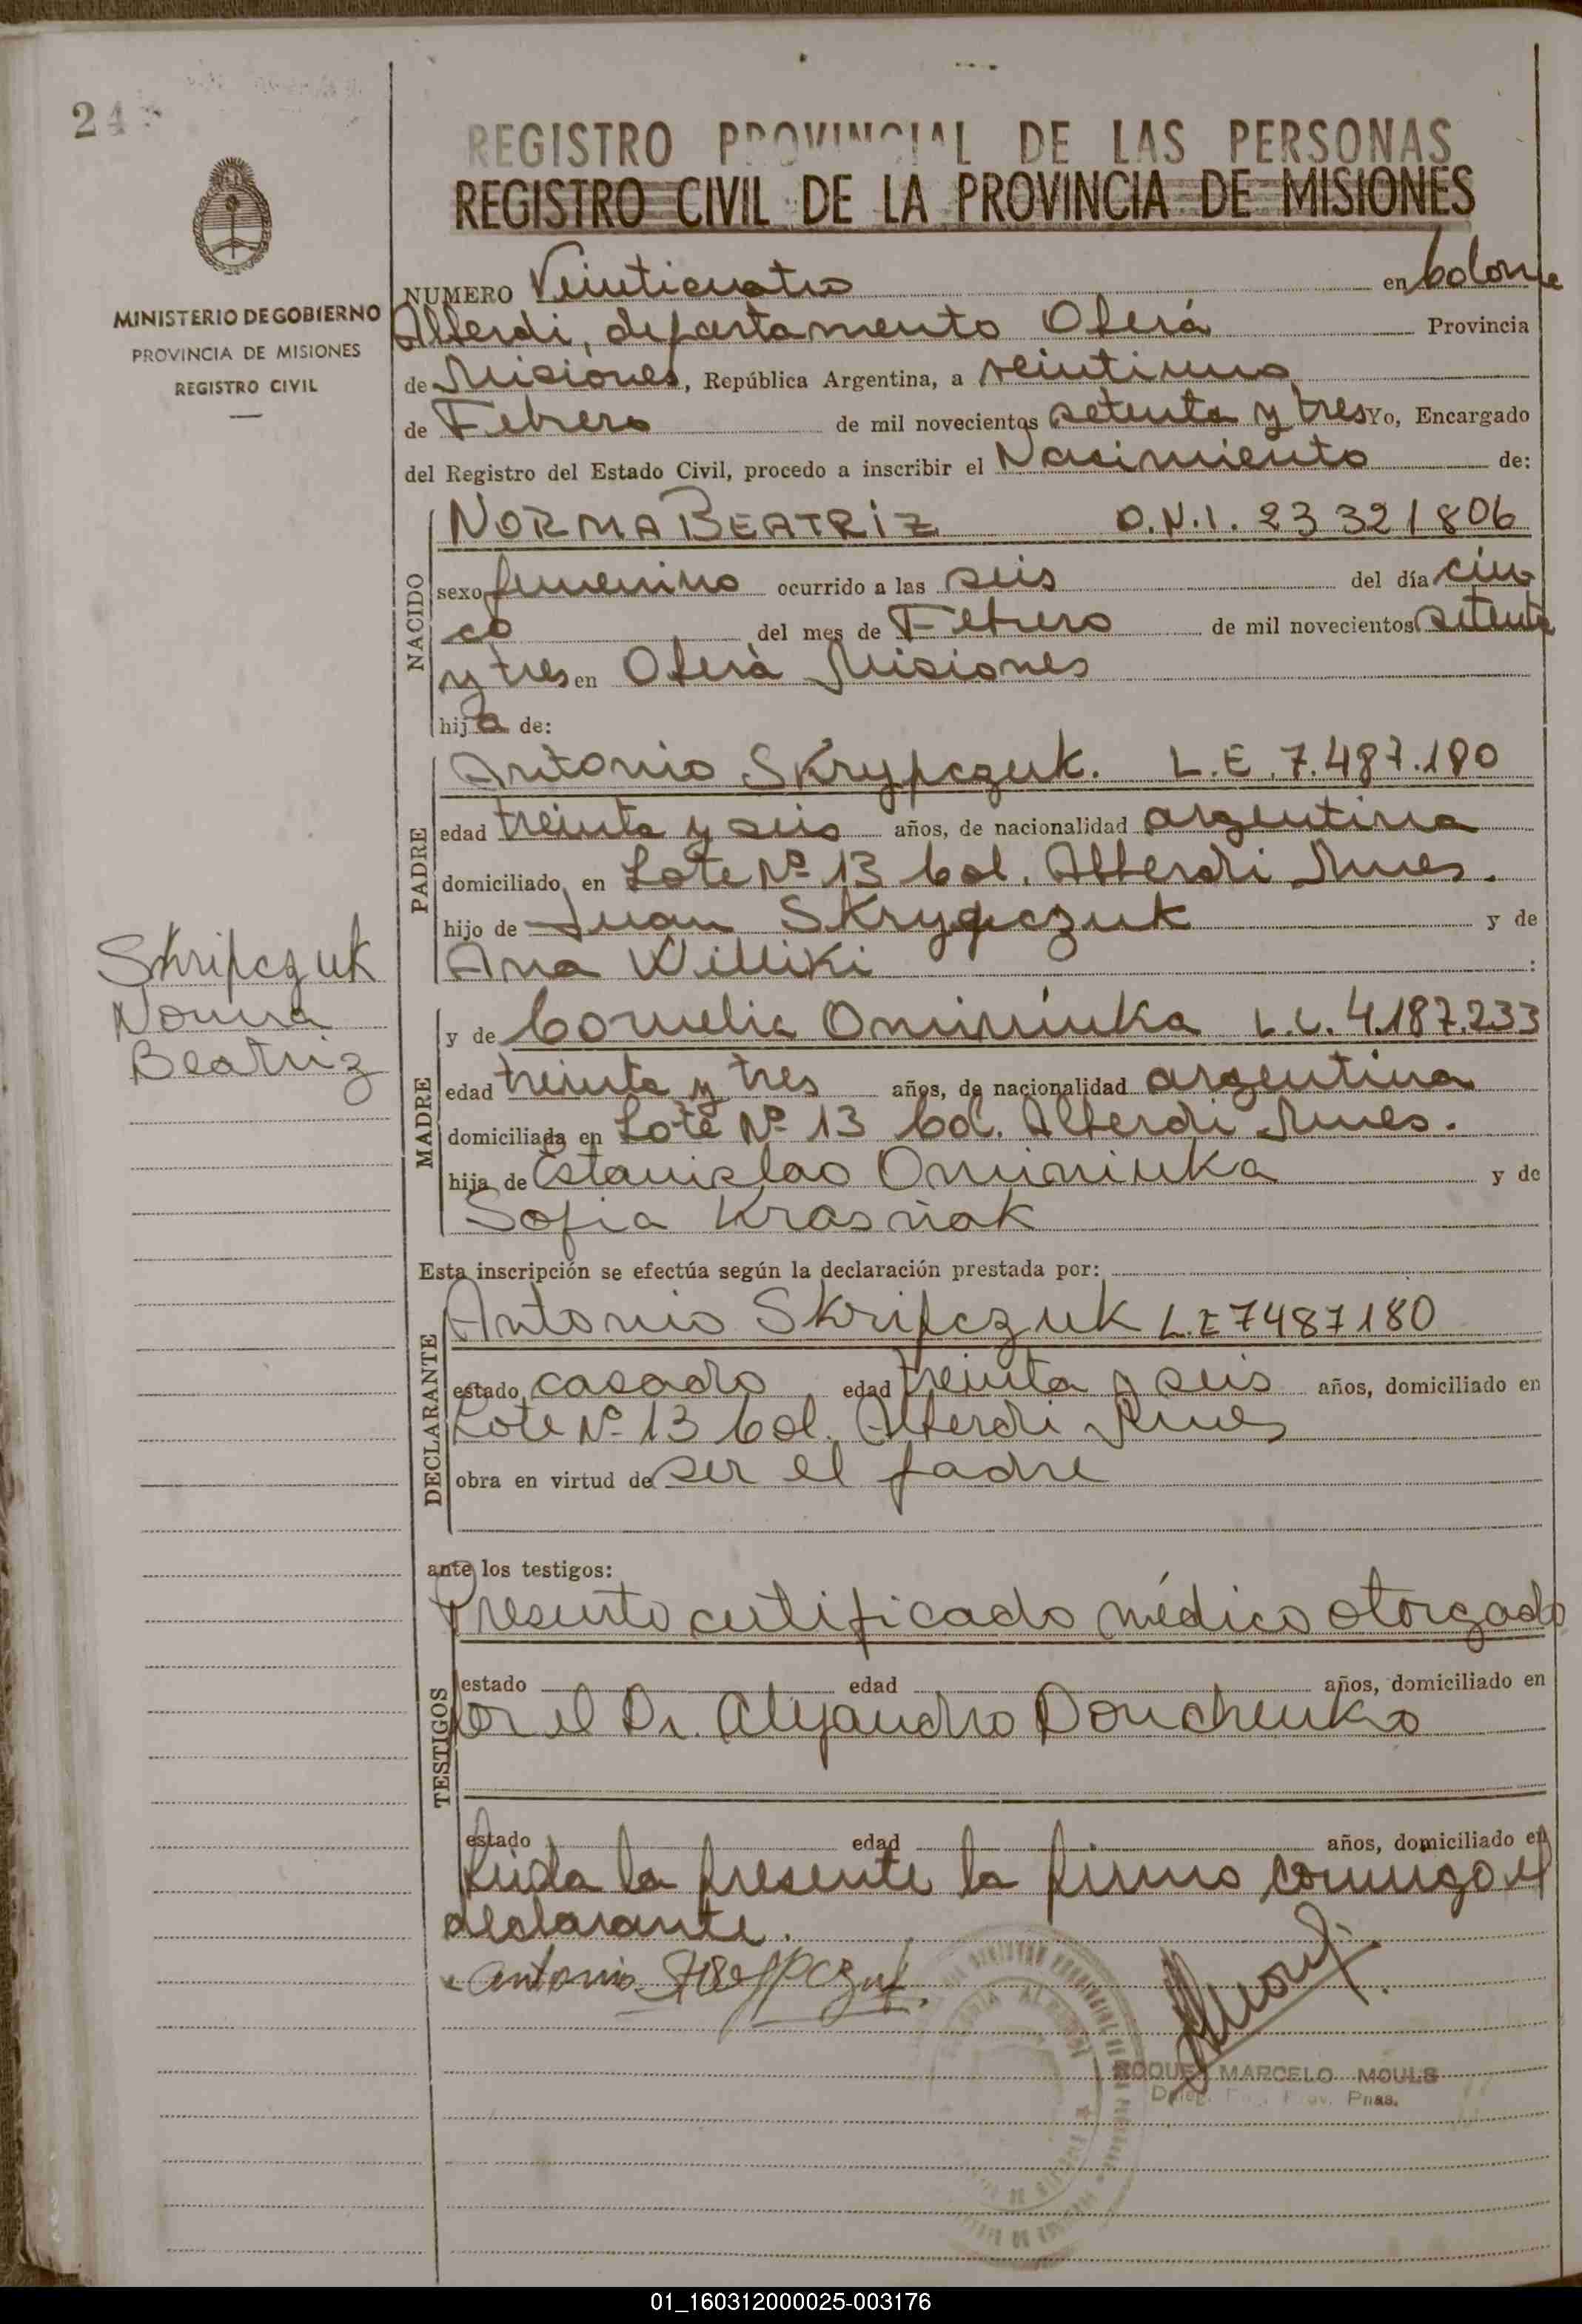 24
MINISTERIO DE GOBIERNO
PROVINCIA DE MISIONES
REGISTRO CIVIL
REGISTRO PROVINCIAL DE LAS PERSONAS
REGISTRO CIVIL DE LA PROVINCIA DE MISIONES
NUMERO Veinticuatro en Colonia
Alberdi, departamento Oberá Provincia
de Misiones, República Argentina, a veintiuno
de Febrero de mil novecientos setenta y tres Yo, Encargado
del Registro del Estado Civil, procedo a inscribir el Nacimiento de:
NACIDO
NORMA BEATRIZ D.N.I. 23 321806
sexo femenino ocurrido a las seis del día cin
co del mes de Febrero de mil novecientos setenta
y tres en Oberá Misiones
hija de:
PADRE
Antonio Skrypczuk. L.E. 7.487.180
edad treinta y seis años, de nacionalidad argentina
domiciliado en Lote Nº 13 Col. Alberdi Mnes.
hijo de Juan Skrypczuk y de
Ana Williki :
Skripczuk
Norma
Beatriz
MADRE
y de Cornelia Ominiuka L.C. 4.187.233
edad treinta y tres años, de nacionalidad argentina
domiciliada en Lote Nº 13 Col. Alberdi Mnes.
hija de Estanislao Ominiuka y de
Sofia Krasñak
Esta inscripción se efectúa según la declaración prestada por:
DECLARANTE
Antonio Skripczuk L.E 7487180
estado casado edad treinta y seis años, domiciliado en
Lote Nº 13 Col. Alberdi Mnes
obra en virtud de ser el padre
ante los testigos:
TESTIGOS
Presento certificado médico otorgado
estado edad años, domiciliado en
por el Dr. Alejandro Donchenko
estado edad años, domiciliado en
Leida la presente la firmo conmigo el
declarante.
Antonio
ROQUE MARCELO MOULS
Prov. Pnas.
01_160312000025-003176